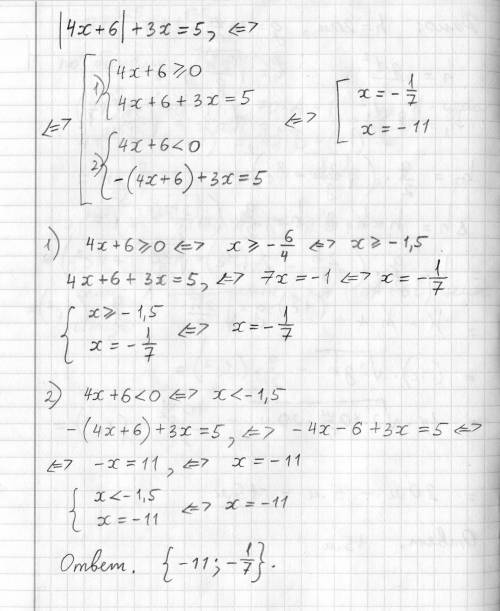 |4x+6|+3x=5, <=>
<=> [ 1) { 4x+6⩾0
4x+6+3x=5
2) { 4x+6<0
-(4x+6)+3x=5
<=> [ x=-1/7
x=-11
1) 4x+6⩾0 <=> x⩾-6/4 <=> x⩾-1,5
4x+6+3x=5, <=> 7x=-1 <=> x=-1/7
{ x⩾-1,5
x=-1/7 <=> x=-1/7
2) 4x+6<0 <=> x<-1,5
-(4x+6)+3x=5, <=> -4x-6+3x=5 <=>
<=> -x=11, <=> x=-11
{ x<-1,5
x=-11 <=> x=-11
Ответ. {-11; -1/7}.